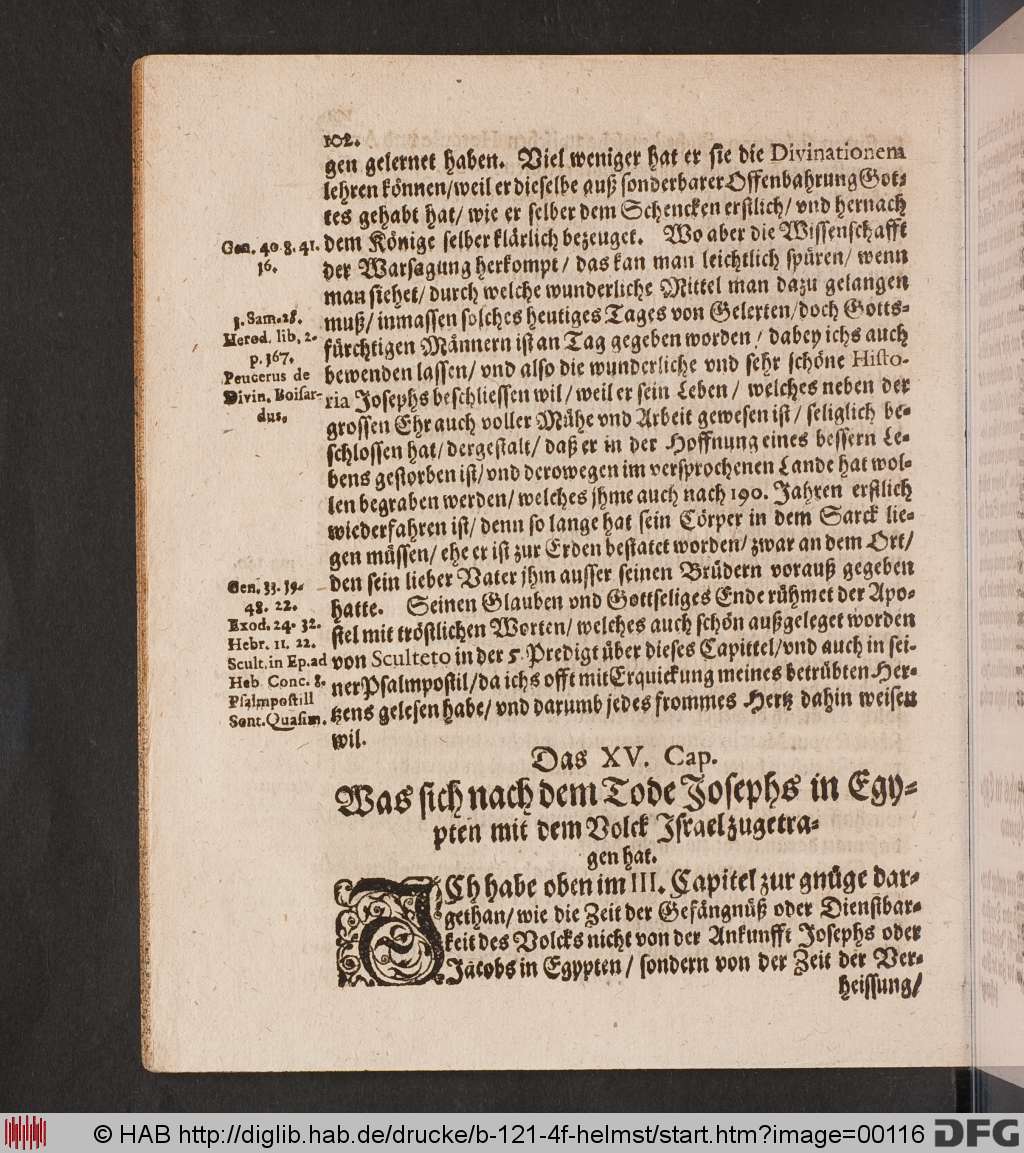 102.
gen gelernet haben. Viel weniger hat er sie die Divinationem
lehren können/weil er dieselbe auß sonderbarer Offenbahrung Got-
tes gehabt hat/ wie er selber dem Schencken erstlich/ vnd hernach
dem Könige selber klärlich bezeuget. Wo aber die Wissenschafft
der Warsagung herkompt/ das kan man leichtlich spüren/ wenn
man siehet/ durch welche wunderliche Mittel man dazu gelangen
muß/ inmassen solches heutiges Tages von Gelerten/doch Gotts-
fürchtigen Männern ist an Tag gegeben worden/ dabey ichs auch
bewenden lassen/ vnd also die wunderliche vnd sehr schöne Histo-
ria Josephs beschliessen wil/ weil er sein Leben/ welches neben der
grossen Ehr auch voller Mühe vnd Arbeit gewesen ist/ seliglich be-
schlossen hat/ dergestalt/ daß er in der Hoffnung eines bessern Le-
bens gestorben ist/ vnd derowegen im versprochenen Lande hat wol-
len begraben werden/ welches jhme auch nach 190. Jahren erstlich
wiederfahren ist/ denn so lange hat sein Cörper in dem Sarck lie-
gen müssen/ ehe er ist zur Erden bestatet worden/ zwar an dem Ort/
den sein lieber Vater jhm ausser seinen Brüdern vorauß gegeben
hatte. Seinen Glauben vnd Gottseliges Ende rühmet der Apo-
stel mit tröstlichen Worten/ welches auch schön außgeleget worden
von Sculteto in der 5. Predigt über dieses Capittel/vnd auch in sei-
ner Psalmpostil/da ichs offt mit Erquickung meines betrübten Her-
tzens gelesen habe/ vnd darumb jedes frommes Hertz dahin weisen
wil.
Gen. 40 8. 41.
16.
1. Sam. 28.
Herod. lib. 2.
p. 167.
Peucerus de
Divin. Boisar-
dus.
Gen. 33. 19.
48. 22.
Exod. 24. 32.
Hebr. 11. 22.
Scult. in Ep. ad
Heb Conc. 8.
Psalmpostill
Sont. Quasim.
Das XV. Cap.
Was sich nach dem Tode Josephs in Egy-
pten mit dem Volck Israel zugetra-
gen hat.
ICh habe oben im III. Capitel zur gnüge dar-
gethan/ wie die Zeit der Gefängnüß oder Dienstbar-
keit des Volcks nicht von der Ankunfft Josephs oder
Jacobs in Egypten/ sondern von der Zeit der Ver-
heissung/
© HAB http://diglib.hab.de/drucke/b-121-4f-helmst/start.htm?image=00116
DFG